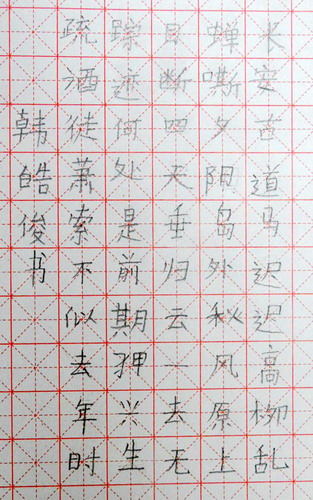 长安古道马迟迟高柳乱
蝉嘶夕阳岛外秋风原上
目断四天垂归云一去无
踪迹何处是前期狎兴生
疏酒徒萧索不似去年时
韩皓俊书